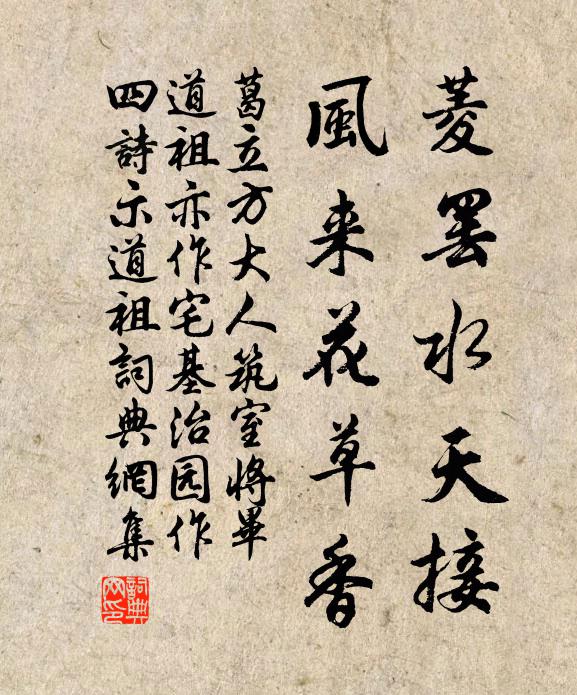 菱罢水天接
風来花草香
葛立方大人筑室將畢
道祖亦作宅基治园作
四詩示道祖詞典網集